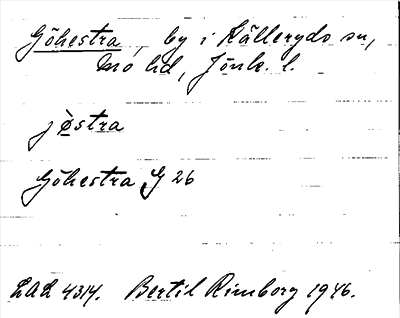 Göhestra, by i Källeryds sn,
Mo hd, Jönk. l.
jø̀stra
Göhestra G 26
LAL 4314. Bertil Rimborg 1946.